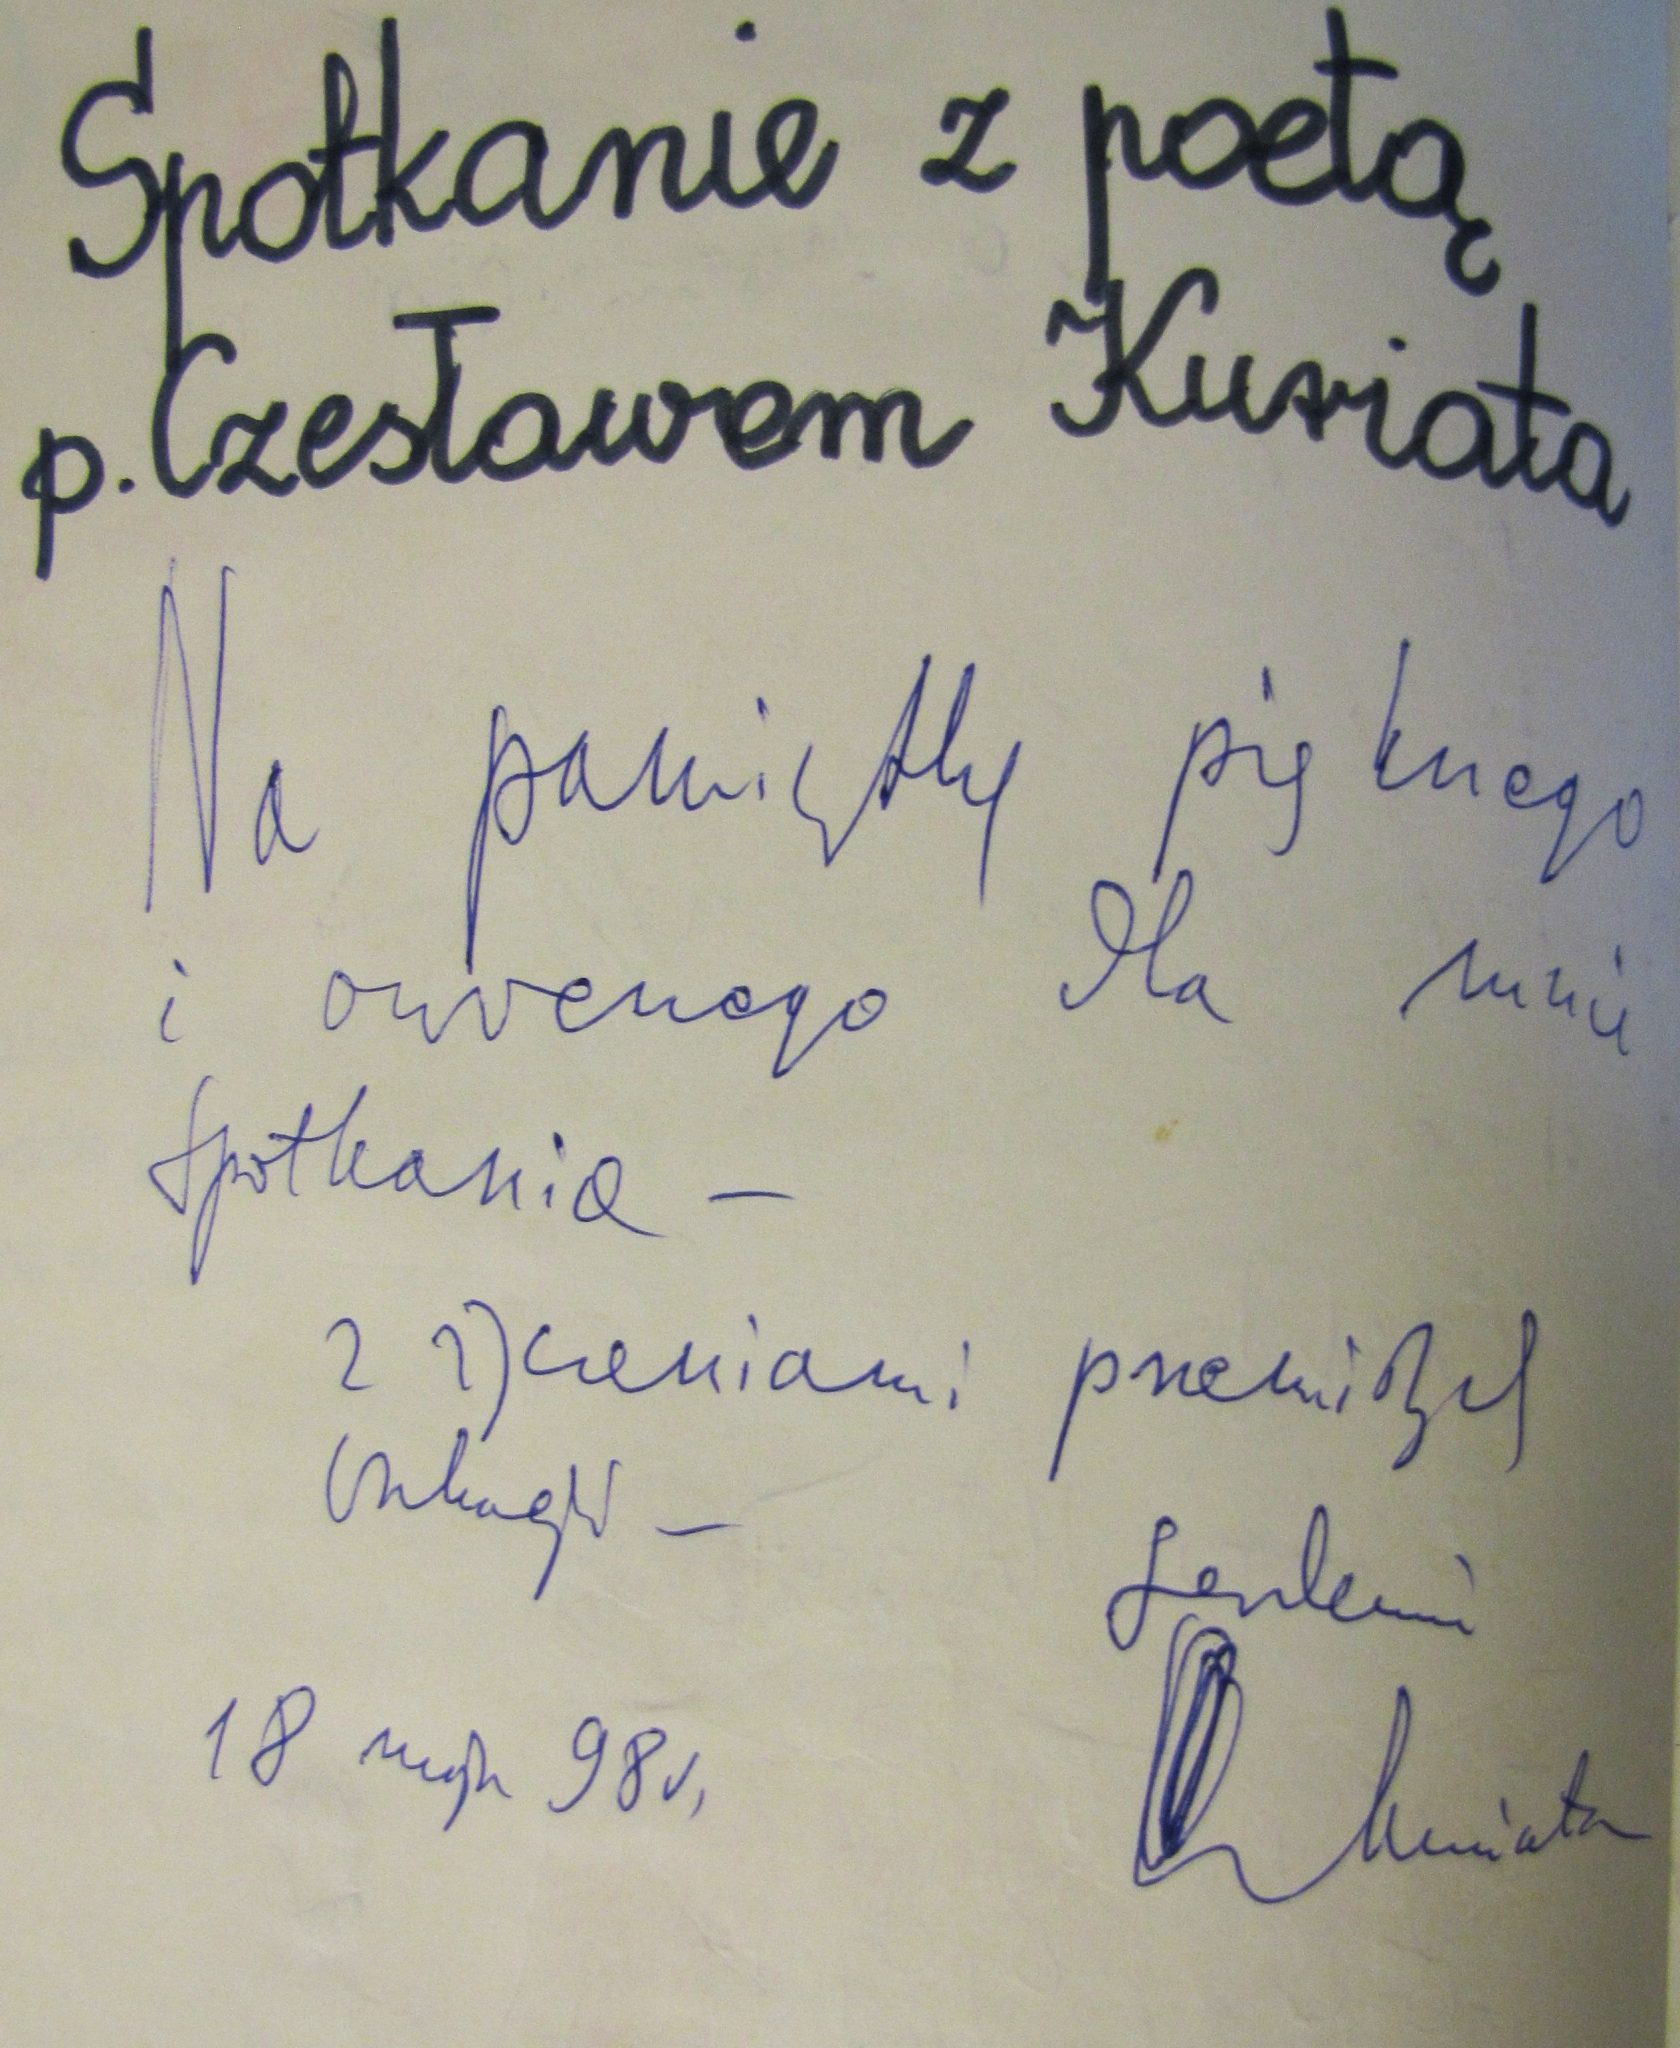 Spotkanie z poetą
p. Czesławem Kuriatą
Na pamiątkę pięknego
i owocnego dla mnie
spotkania –
z życzeniami przemiłych
–
serdecznie
18 maja 98 r.
Kuriata